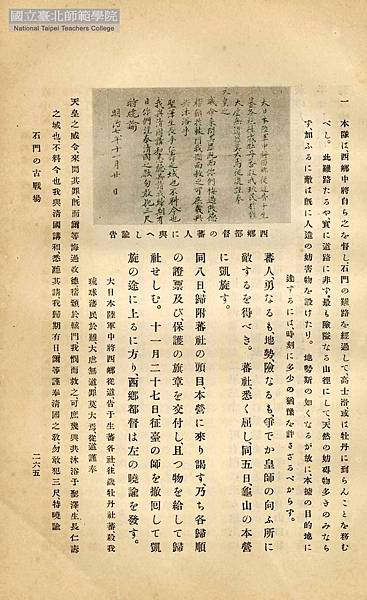 國立臺北師範學院
National Taipei Teachers College
一 本隊は、西鄕中將自ら之を督し、石門の難路を經過して、高士滑或は牡丹に到らんことを務む
べし。此難路たるや實に道路に非ず、最も險隘なる山徑にして天然の妨碍物多きのみなら
ず、加ふるに敵は旣に人造の妨害物を設けたり。地勢斯の如くなるが故に、本據の目的地に
達するには、時刻に多少の猶豫を許さざるべからず。
西鄕都督の蕃人に與へし諭告
蕃人、勇なるも、地勢、險なるも、爭でか皇師の向ふ所に
敵するを得べき。蕃社、悉く屈し、同五日、龜山の本營
に凱旋す。
同八日、歸附蕃社の頭目、本營に來り謁す。乃ち各歸順
の證票及び保護の旗章を交付し、且つ物を給して歸
社せしむ。十一月二十七日、征臺の師を撤回して凱
旋の途に上るに方り、西鄕都督は左の曉諭を發す。
大日本陸軍中將西鄕從道告于生蕃各社、往歲牡丹社蕃殺我
琉球藩民於難、大虐無道、罪莫大焉、從道謹奉
天皇之威命、來問其罪、旣而爾等悔過改德、稽顙於轅門、我憫而救之、可庶幾與共沐浴于聖澤、生長仁壽
之域也、不料今也我與淸國講和、悉聽其請、我歸期有日、爾等謹奉淸國之敎、勿敢犯三尺、特曉諭
石門の古戰場
二六五